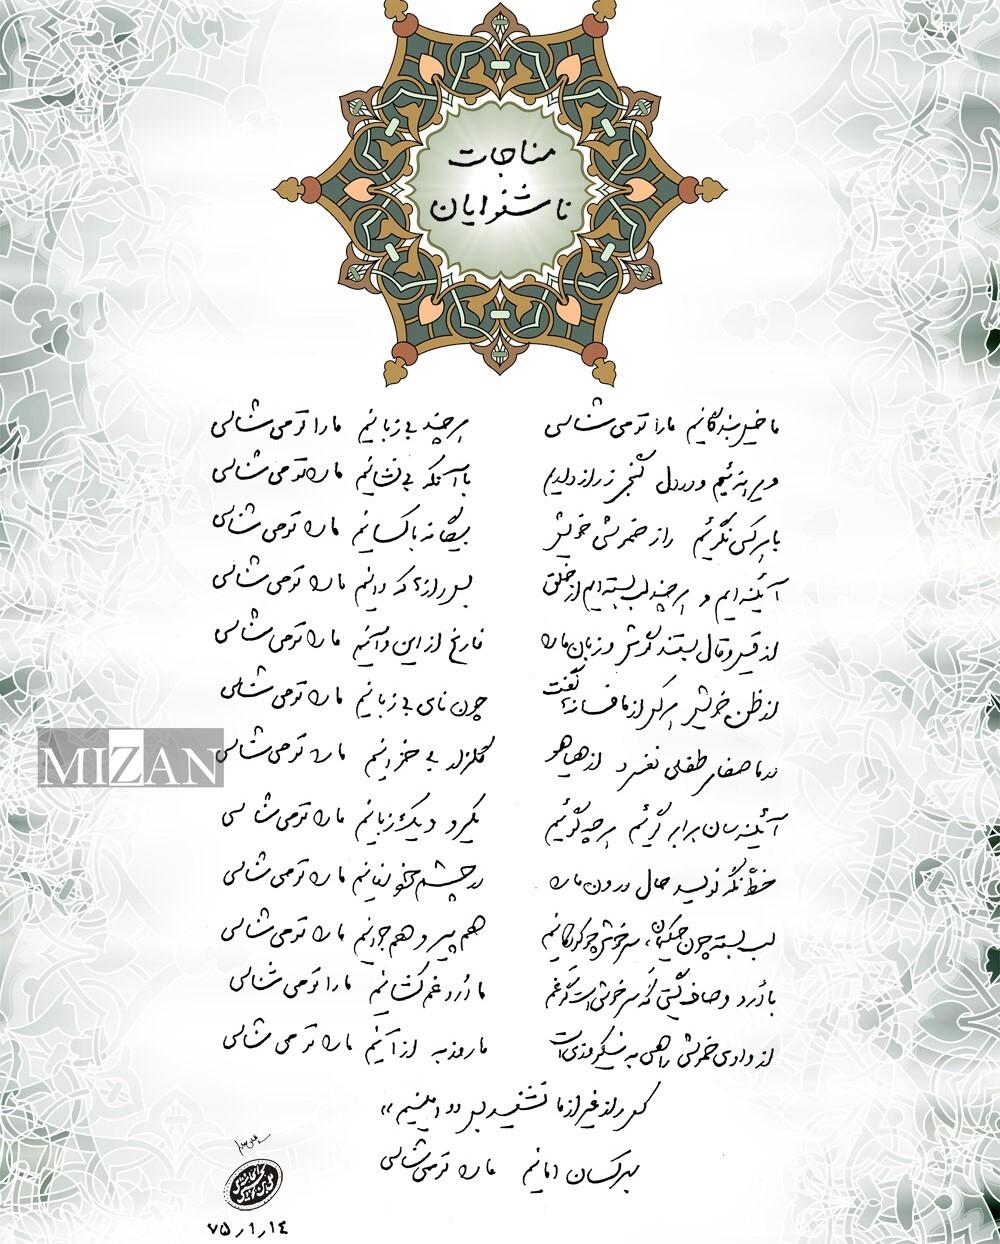 مناجات
ناشنوایان
ما خیل بندگانیم ما را تو می‌شناسی
هر چند بی‌زبانیم ما را تو می‌شناسی
ویرانه‌ئیم و در دل گنجی ز راز داریم
با آنکه بی‌نشانیم ما را تو می‌شناسی
با هر کسی نگوئیم راز خموشی خویش
بیگانه با کسانیم ما را تو می‌شناسی
آئینه‌ایم و هر چند لب بسته‌ایم از خلق
بس رازها که دانیم ما را تو می‌شناسی
از قیل و قال بستند گوش و زبان ما را
فارغ از این و آنیم ما را تو می‌شناسی
از ظن خویش هر کس از ما فسانه‌ها گفت
چون نای بی‌زبانیم ما را تو می‌شناسی
در ما صفای طفلی نفسرد از هیاهو
گلزار بی‌خزانیم ما را تو می‌شناسی
آئینه‌سان برابر گوئیم هر چه گوئیم
یکرو و یک زبانیم ما را تو می‌شناسی
خطّ نگه نویسد حال درون ما را
در چشم خود نهانیم ما را تو می‌شناسی
لب بسته چون حکیمان، سر خوش چو کودکانیم
هم پیر و هم جوانیم ما را تو می‌شناسی
با دُرد و صاف گیتی گه سرخوش است گه غم
ما دُرد غم کشانیم ما را تو می‌شناسی
از وادی خموشی راهی به نیکروزی است
ما روز به از آنیم ما را تو می‌شناسی
کس راز غیر از ما نشنید بس «امینیم»
بهر کسان امانیم ما را تو می‌شناسی
۷۵/۱/۱۴
MIZAN